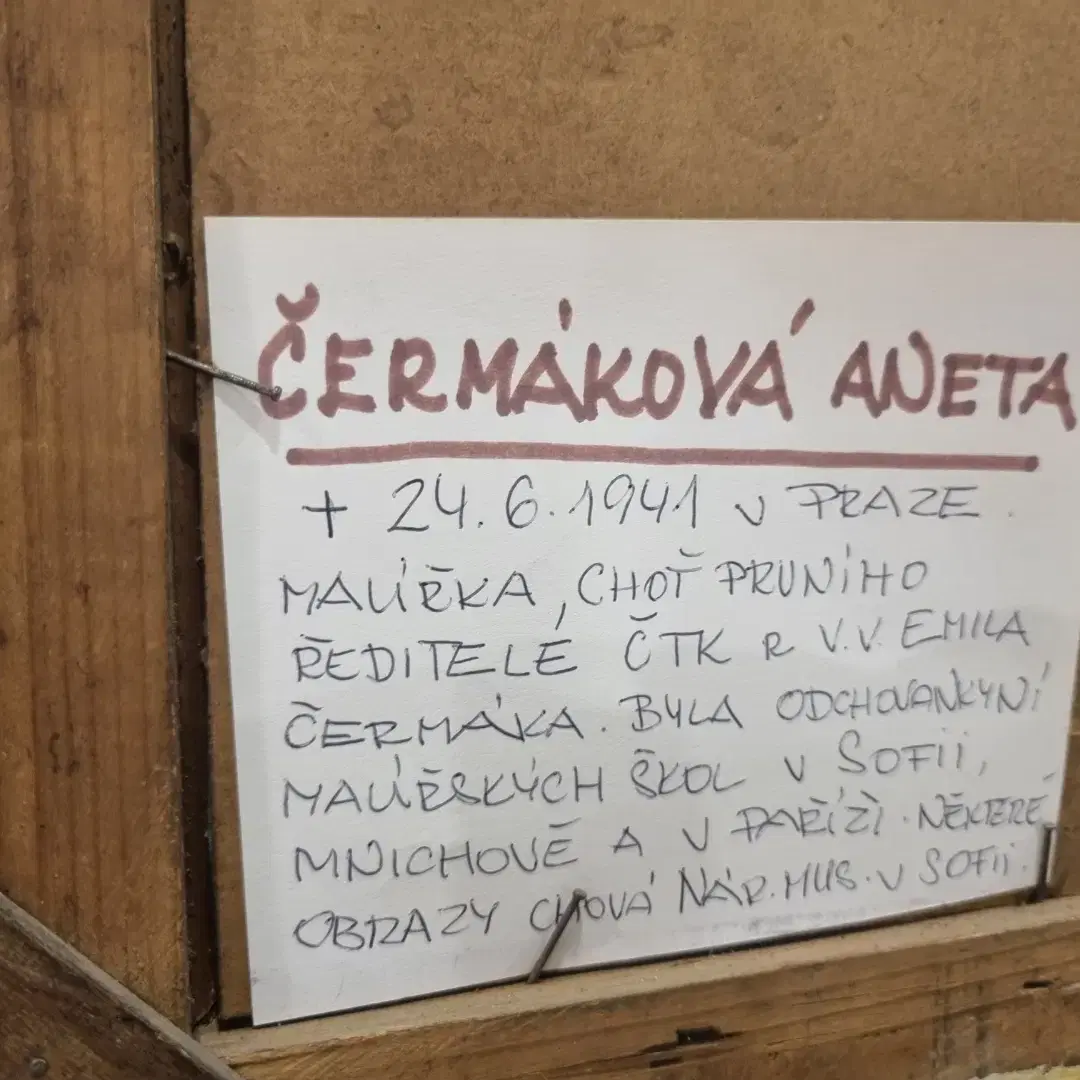 ČERMÁKOVÁ ANETA
+ 24.6.1941 v PRAZE.
MALÍŘKA, CHOŤ PRVNÍHO
ŘEDITELE ČTK R V.V. EMILA
ČERMÁKA. BYLA ODCHOVANKYNÍ
MALÍŘSKÝCH ŠKOL v SOFII,
MNICHOVĚ A v PAŘÍŽI. NĚKTERÉ
OBRAZY CHOVÁ NÁR. MUS. v SOFII.